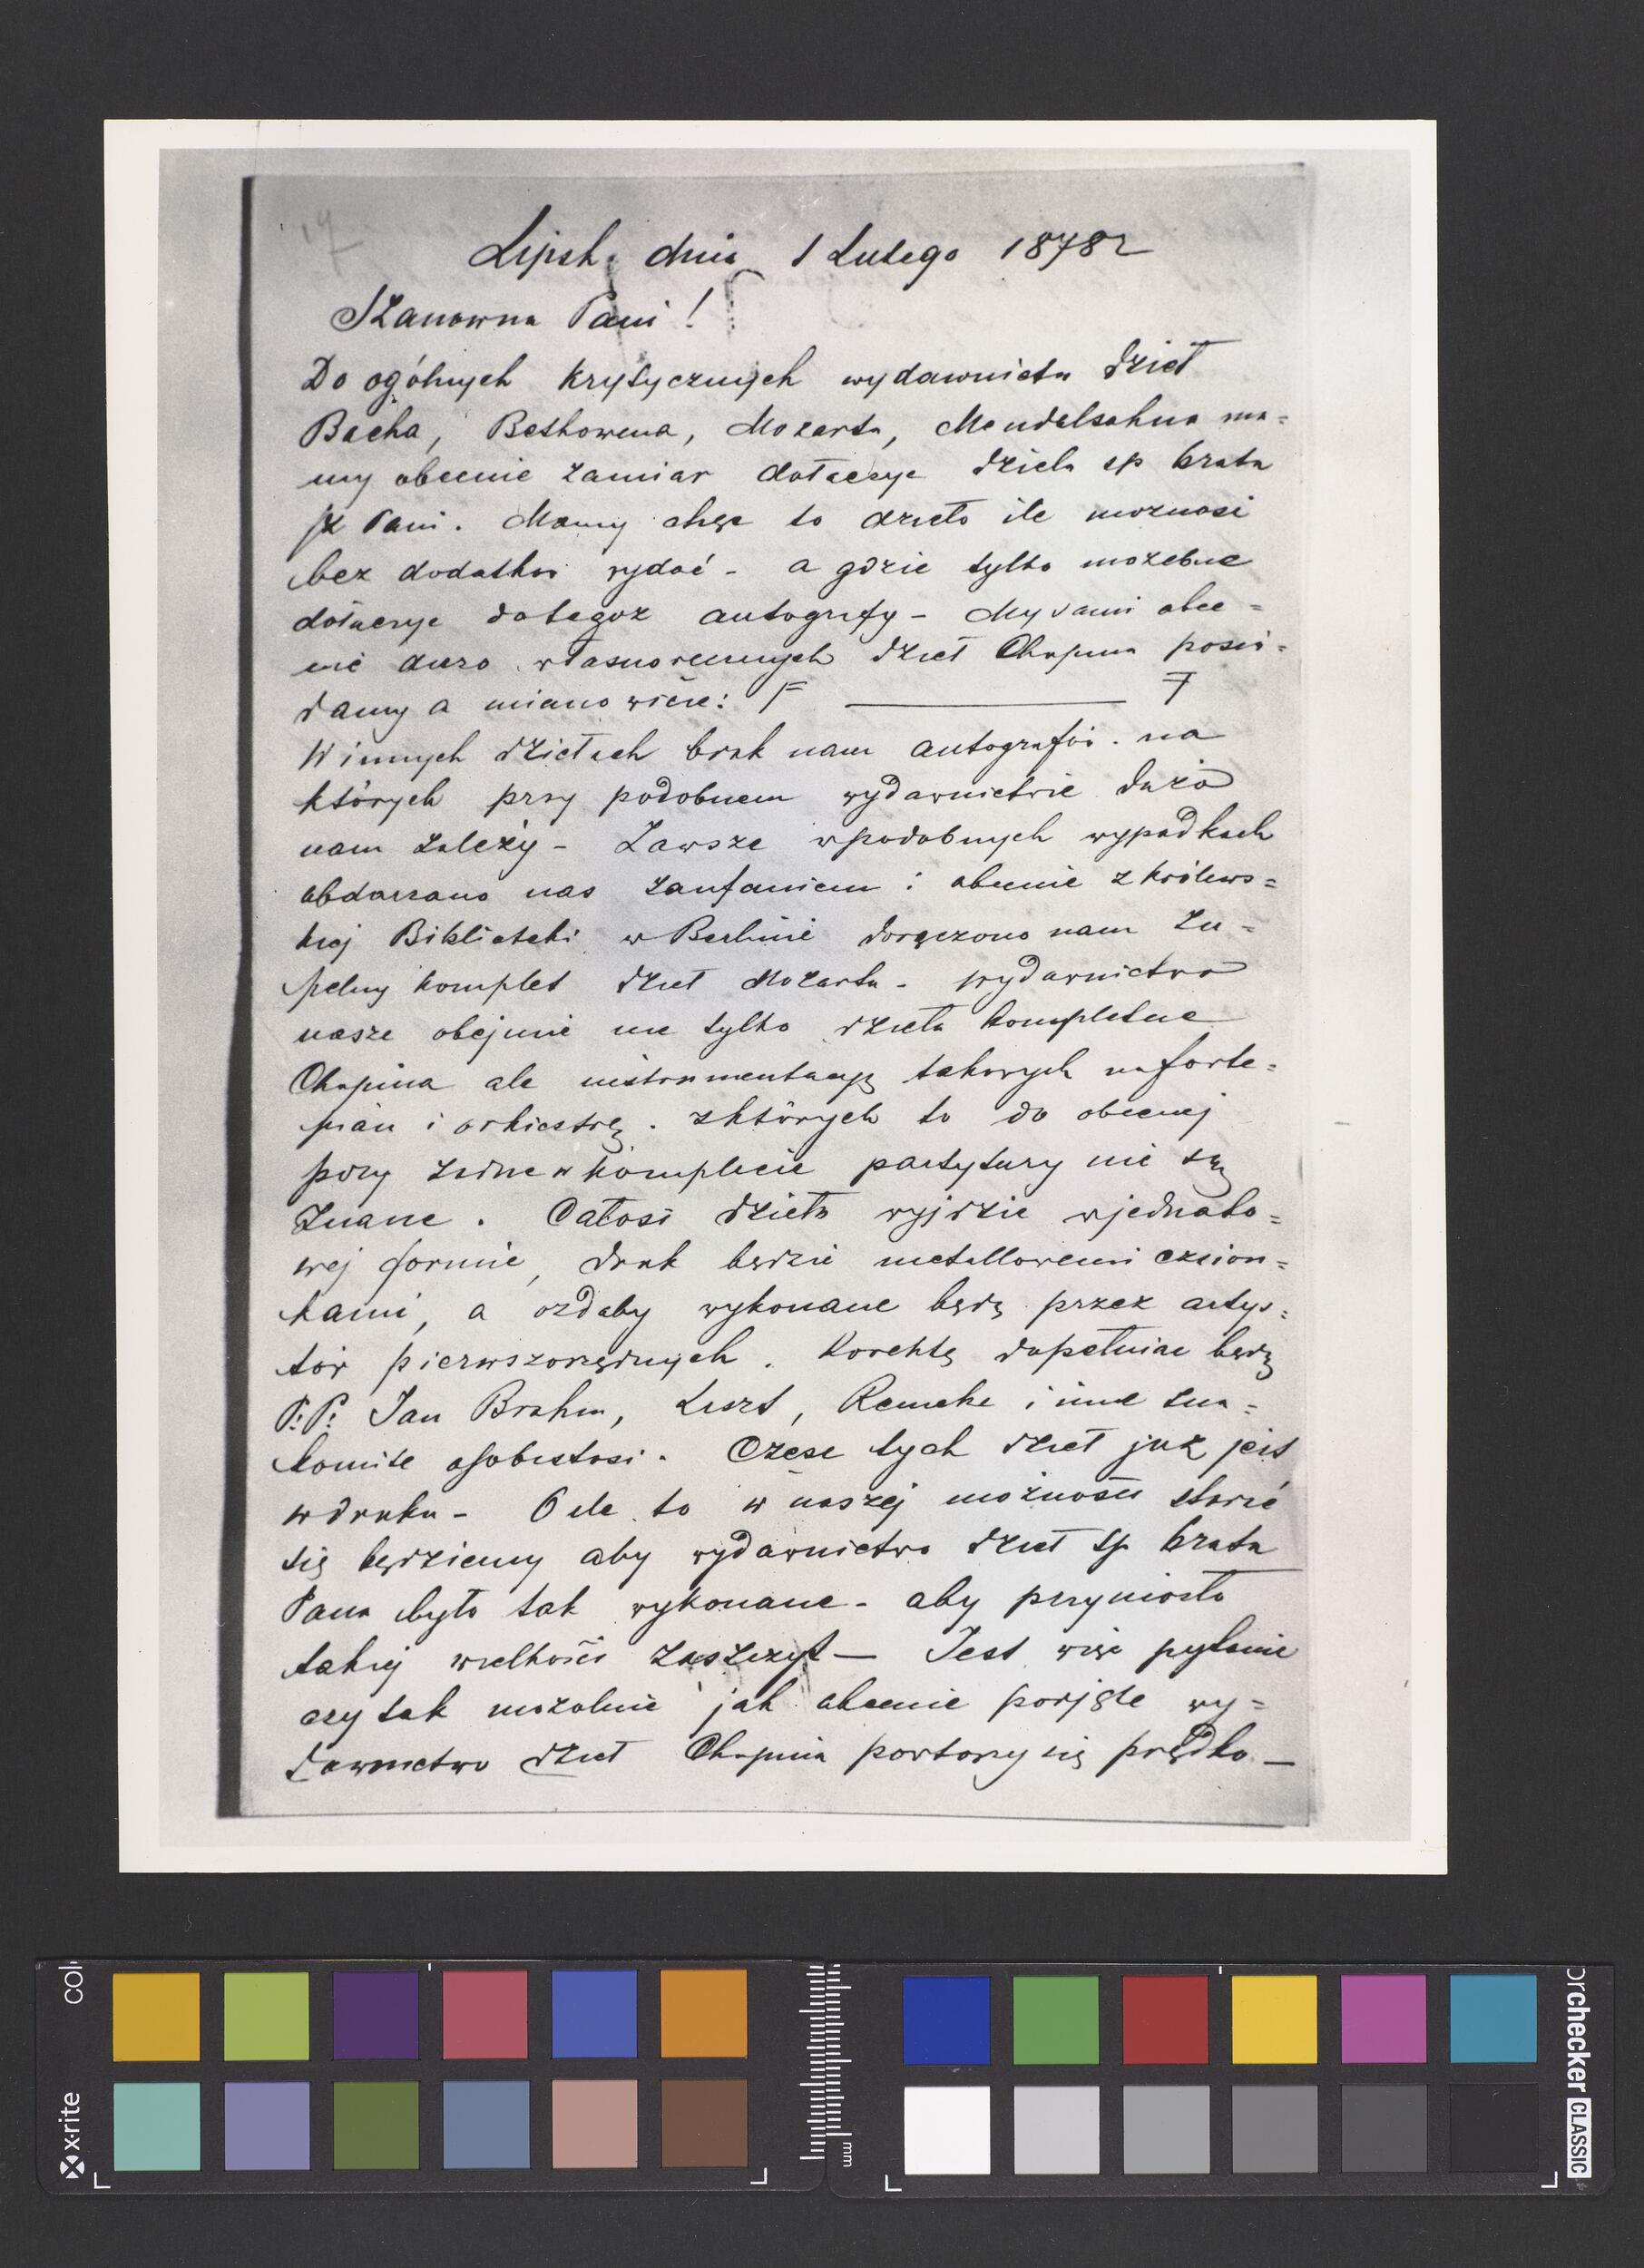 17
Lipsk. dnia 1 Lutego 1878 r
Szanowna Pani!
Do ogólnych krytycznych wydawnictw dzieł
Bacha, Bethowena, Mozarta, Mendelsohna ma=
my obecnie zamiar dołaczyc dzieła sp brata
Pani. Mamy chęc to dzieło ile moznosci
bez dodatkow wydać - a gdzie tylko możebne
dołaczyc dotegoz autografy - My sami obec=
nie duzo własnorecznych dzieł Chopina posia=
damy a mianowicie: F ——— F
W innych dziełach brak nam autografów. na
których przy podobnem wydawnictwie dużo
nam zależy - Zawsze wpodobnych wypadkach
obdarzano nas zaufaniem i obecnie z królews=
kiej Biblioteki w Berlinie doręczono nam zu=
pełny komplet dzieł Mozarta - wydawnictwo
nasze obejmie nie tylko dzieła kompletne
Chopina ale instrumentacyę takowych naforte=
pian i orkiestrę. zktórych to do obecnej
pory zadne w komplecie partytury nie są
znane. Całosc dzieła wyjdzie wjednako=
wej formie, druk będzie metallowemi czcion=
kami, a ozdoby wykonane będą przez artys=
tów pierwszorzędnych. Korektę dopełniac będą
P:P: Jan Brahm, Liszt, Reineke i inne zna=
komite osobistosci. Częsc tych dzieł już jest
wdruku - O ile to w naszej możnosci starać
się będziemy aby wydawnictwo dzieł sp brata
Pana było tak wykonane - aby przyniosło
takiej wielkości zaszczyt — Jest więc pytanie
czy tak mozolnie jak obecnie podjęte wy=
dawnictwo dzieł Chopina powtorzy się prędko —
x-rite
colorchecker CLASSIC
mm